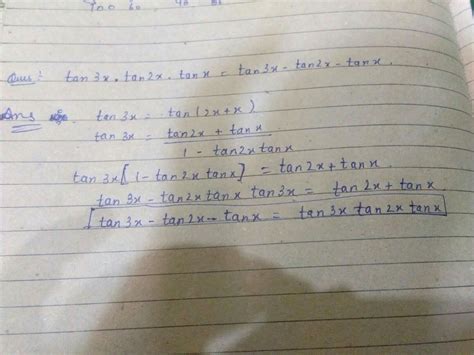 Ques: tan3x · tan2x · tanx = tan3x - tan2x - tanx.
Ans tan3x = tan(2x+x)
tan3x = tan2x + tanx
1 - tan2x tanx
tan3x[1 - tan2x tanx] = tan2x + tanx
tan3x - tan2x tanx tan3x = tan2x + tanx.
tan3x - tan2x - tanx = tan3x tan2x tanx